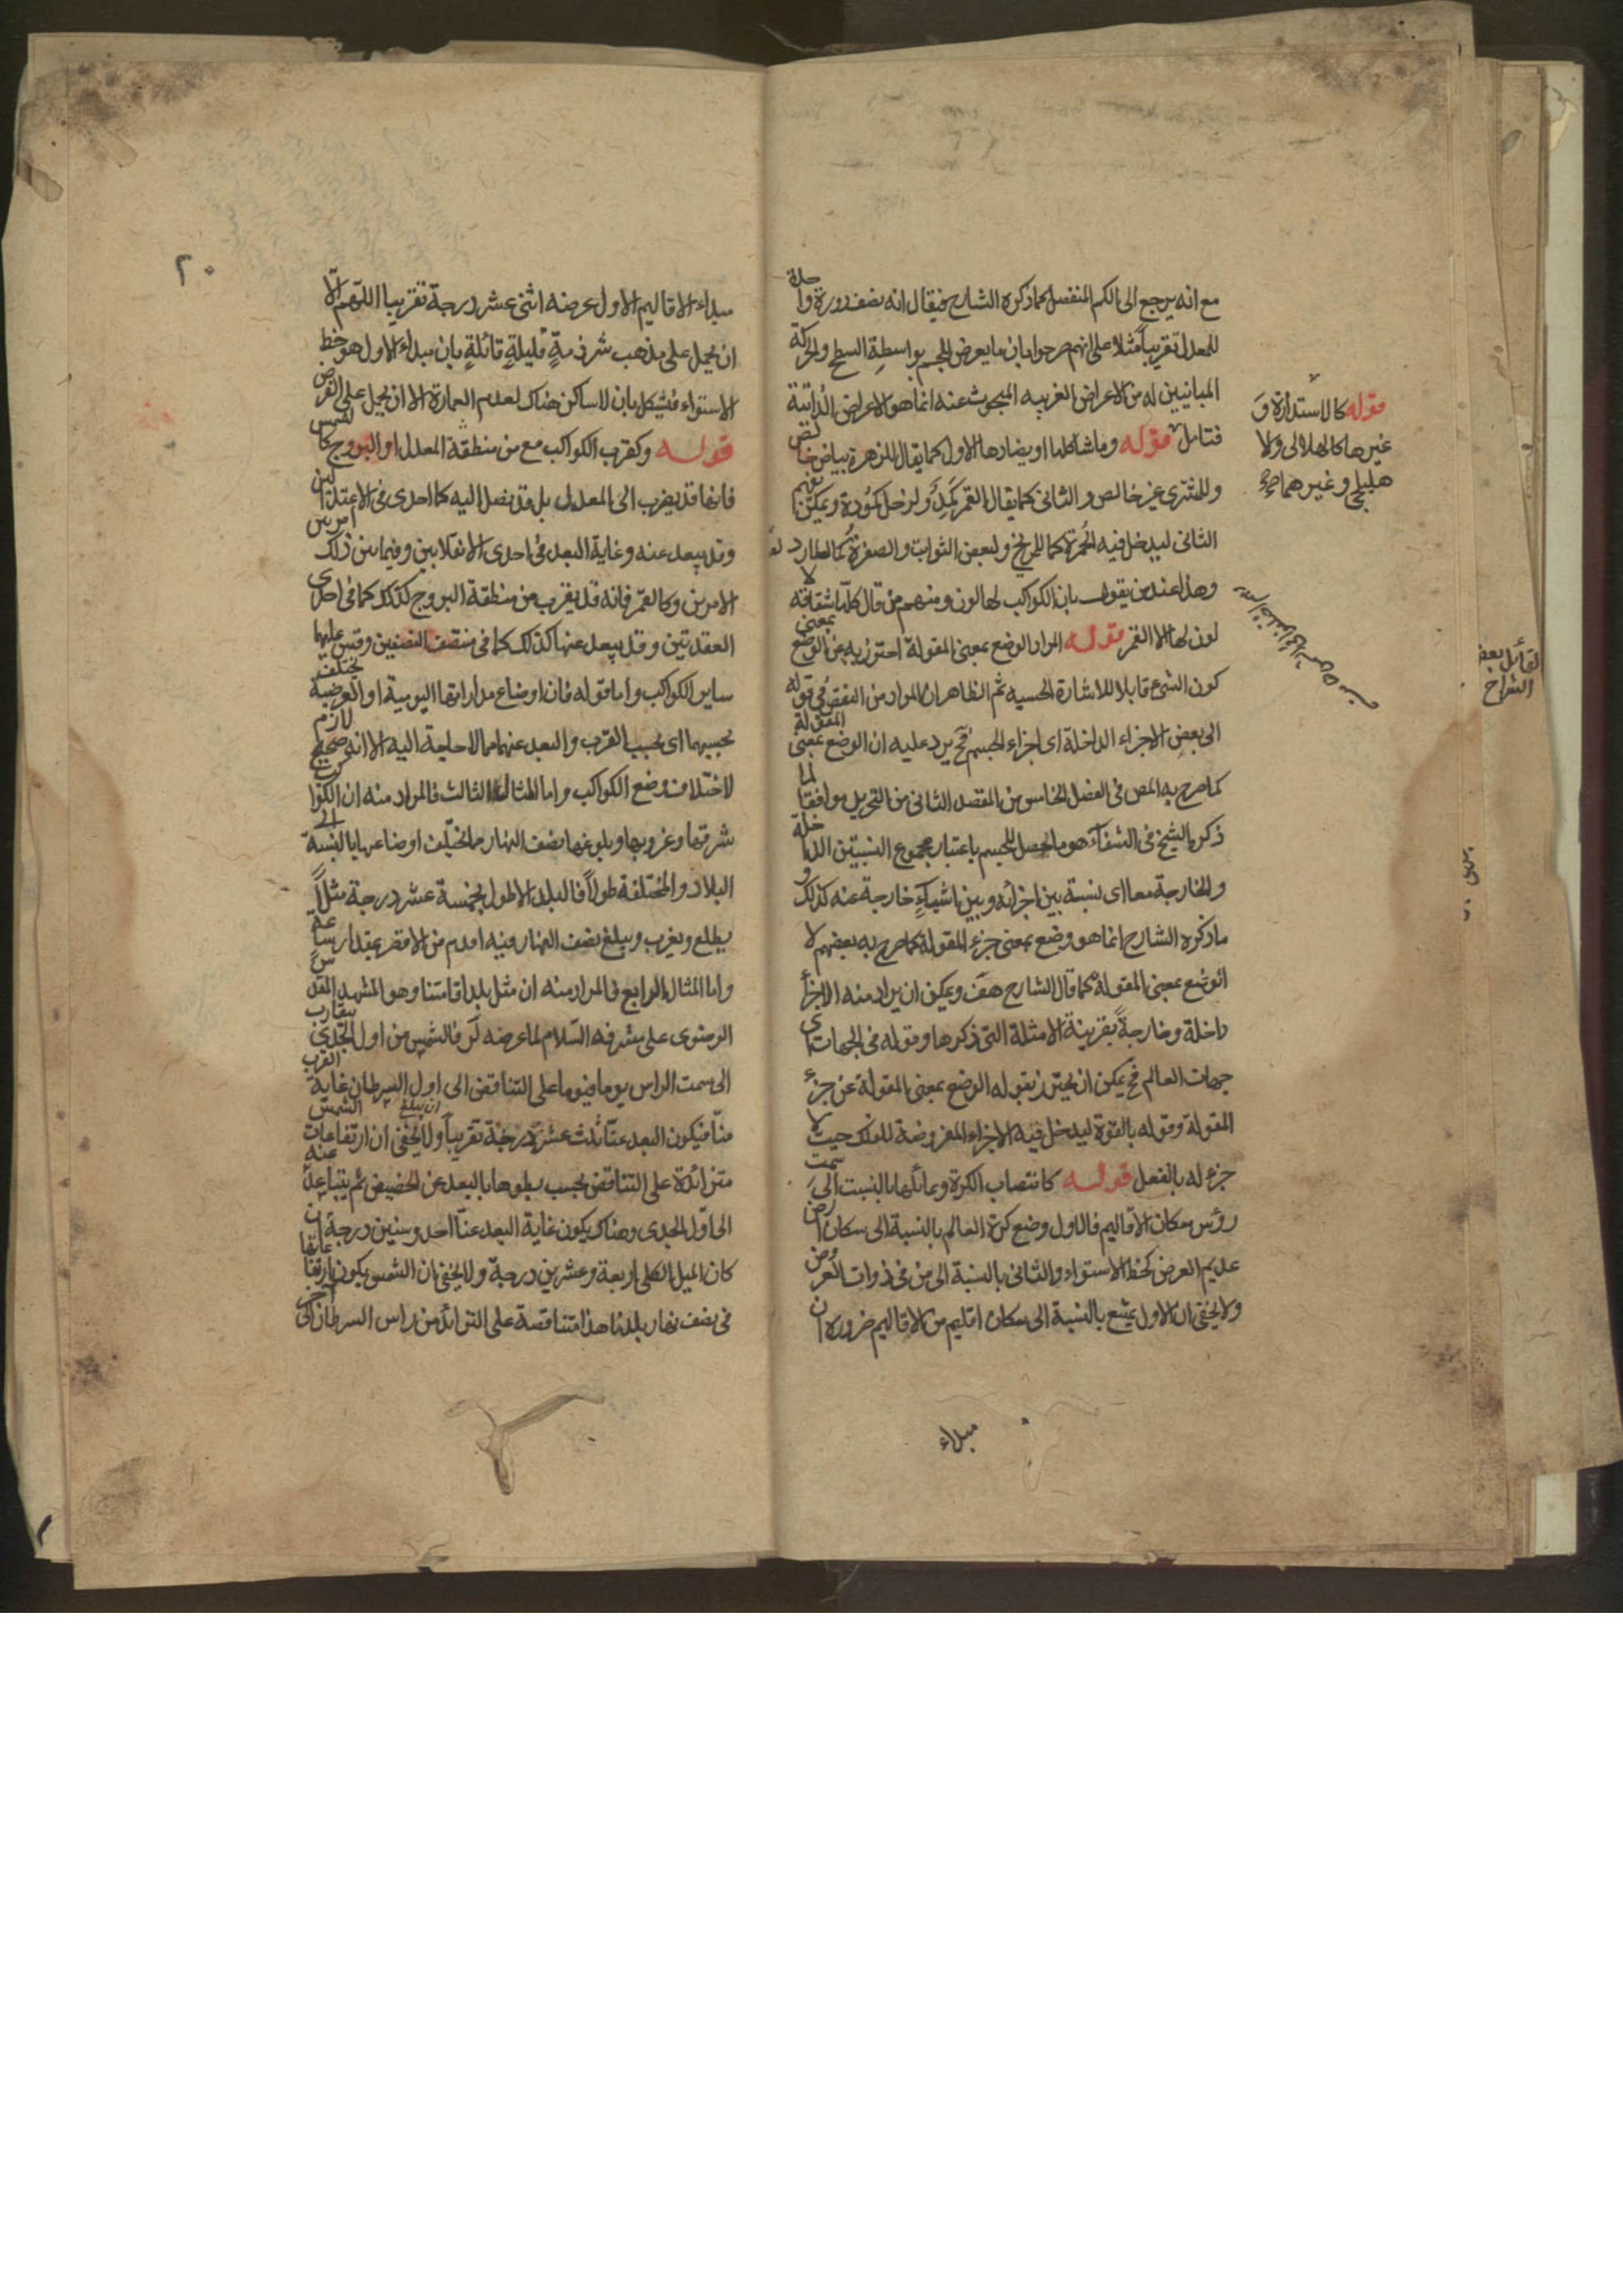 مع انه يرجع الى الكم المنفصل كما ذكره الشارح فيقال انه نصف دورة واحدة
للمعدل تقريباً مثلا على انهم صرحوا بان ما يعرض للجسم بواسطة السطح والحركة
المباينين له من الاعراض الغريبه المبحوث عنه انما هو الاعراض الذاتية
فتامل قوله وما شاكلها او يضادها الاول كما يقال للزهرة بياض خالص
وللمشترى غير خالص والثانى كما يقال للقمر كمد ولزحل كمودة ويمكن
الثانى ليدخل فيه الحمرة كما للمريخ ولبعض الثوابت والصفرة كما لعطارد
وهذا عند من يقول بان الكواكب لها لون ومنهم من قال كلها شفافة لا
لون لها الا القمر قوله المراد الوضع بمعنى المقولة احترز به عن الوضع بمعنى
كون الشئ قابلا للاشارة الحسيه ثم الظاهر ان المراد من البعض فى قوله
الى بعض الاجزاء الداخلة اى اجزاء الجسم فح يرد عليه ان الوضع بمعنى المقولة
كما صرح به المص فى الفصل الخامس من المقصد الثانى من التجريد موافقا لما
ذكره الشيخ فى الشفاء هو ما يحصل للجسم باعتبار مجموع النسبتين الداخلة
والخارجة معا اى نسبة بين اجزائه وبين اشياء خارجة عنه كذلك و
ما ذكره الشارح انما هو وضع بمعنى جزء المقولة كما صرح به بعضهم لا
الوضع بمعنى المقولة كما قال الشارح هف ويمكن ان يراد منه الاجزاء
داخلة وخارجة بقرينة الامثلة التى ذكرها وقوله فى الجهات اى
جهات العالم فح يمكن ان يحترز بقوله الوضع بمعنى المقولة عن جزء
المقولة وقوله بالقوة ليدخل فيه الاجزاء المفروضة للفلك حيث لا
جزء له بالفعل قوله كانتصاب الكرة وتمائلها بالنسبت الى سمت
رؤس سكان الاقاليم فالاول وضع كرة العالم بالنسبة الى سكان ارض
عديم العرض كخط الاستواء والثانى بالنسبة الى من فى ذوات العروض
ولا يخفى ان الاول يمتنع بالنسبة الى سكان اقليم من الاقاليم ضرورة ان
مبداء
قوله كالاستدارة و
غيرها كالهلالى والا
هليلجى وغيرهما
لقائل بعض
الشراح
٢٠
مبداء الاقاليم الاول عرضه اثنى عشر درجة تقريبا اللهم الا
ان يحمل على مذهب شرذمة قليلة قائلة بان مبداء الاول هو خط
الاستواء فيشكل بان لا ساكن هناك لعدم العمارة الا ان يحمل على الفرض
قوله وكقرب الكواكب مع من منطقة المعدل او البروج كالشمس
فانها قد يقرب الى المعدل بل قد يصل اليه كما احدى فى الاعتدالين
وقد يبعد عنه وغاية البعد فى احدى الانقلابين وفيما بين ذلك امر بين
الامرين وكالقمر فانه قد يقرب من منطقة البروج كذلك كما فى احدى
العقدتين وقد يبعد عنها كذلك كما فى منتصف النصفين وقس عليها
ساير الكواكب واما قوله فان اوضاع مداراتها اليومية او العرضية مختلف
بحسبهما اى بحسب القرب والبعد عنهما مما لا حاجة اليه الا انه صحيح لازم
لاختلاف وضع الكواكب واما المثال الثالث فالمراد منه ان الكواكب
شرقتها وغروبها وبلوغها نصف النهار مما يختلف اوضاعها بالنسبة الى
البلاد والمختلفة طولاً فالبلد الاطول بخمسة عشر درجة مثلاً
يطلع ويغرب ويبلغ نصف النهار فيه اقدم من الاقصر بمقدار ساعة
واما المثال الرابع فالمراد منه ان مثل بلد اقامتنا وهو المشهد المقدس
الرضوى على مشرفه السلام لما عرضه لز فالشمس من اول الجدى يتقارب
الى سمت الراس يوما فيوما على التناقص الى اول السرطان غاية القرب
منا فيكون البعد عنا ثلث عشرة درجة تقريباً ولا يخفى ان ارتفاعات الشمس
متزائدة على التناقص بحسب بطوها بالبعد عن الحضيض ثم يتباعد عنه
الى اول الجدى وهناك يكون غاية البعد عنا احد وستين درجة ان
كان الميل الكلى اربعة وعشرين درجة ولا يخفى ان الشمس يكون ارتفاعاتها
فى نصف نهار بلدنا هذا متناقصة على التزائد من راس السرطان الى اخر